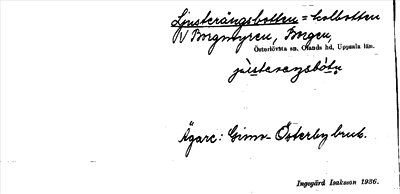 Ljusterängsbotten = kolbotten
V Bergmyren, Bergen,
Österlövsta sn. Olands hd, Uppsala län.
jùsteraŋsbótn
Ägare: Gimo-Österby bruk.
Ingegärd Isaksson 1936.